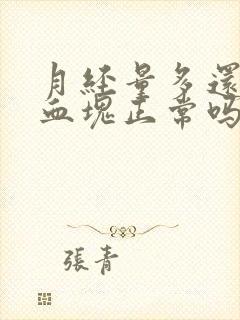 月經量多還
血塊正常嗎
張青